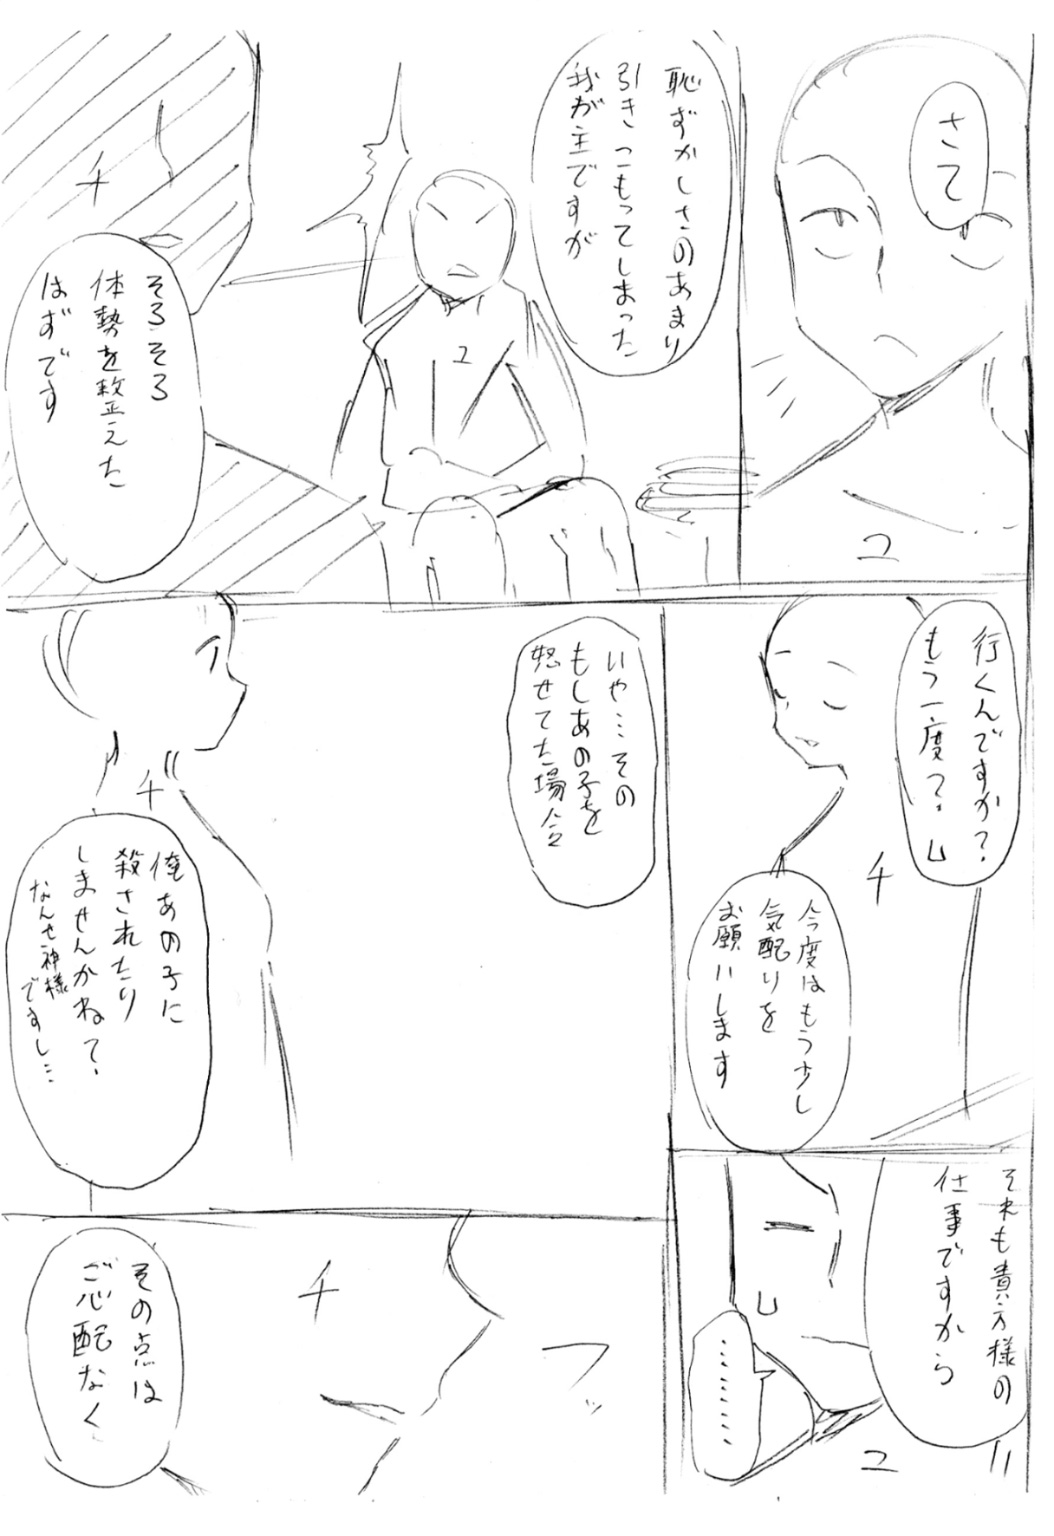 さて
ユ
恥ずかしさのあまり
引きこもってしまった
我が主ですが
ユ
そろそろ
体勢を整えた
はずです
チ
行くんですか?
もう一度?
山
今度はもう少し
気配りを
お願いします
チ
いや…その
もしあの子を
怒せてた場合
俺あの子に
殺されたり
しませんかね?
なんせ神様
ですし…
チ
それも貴方様の
仕事ですから
………
ユ
フッ
チ
その点は
ご心配なく